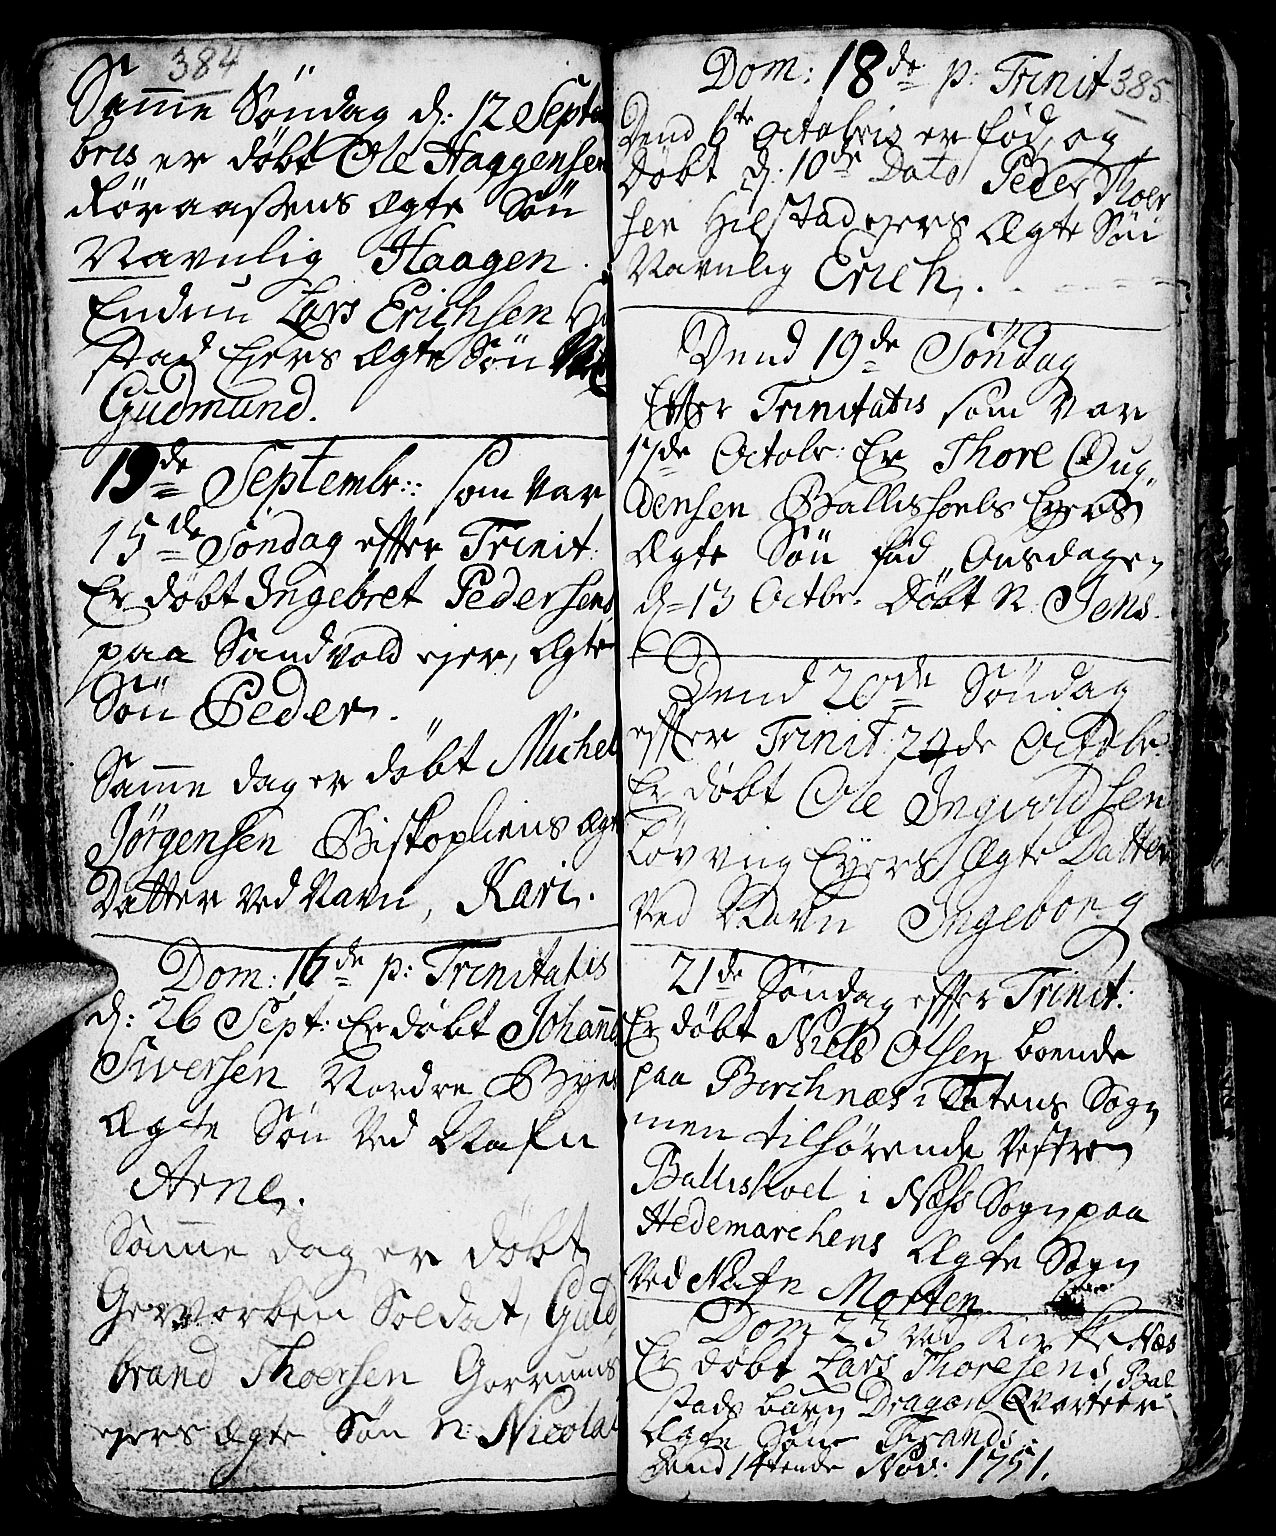 384
Samme Söndag d: 12 Septem
bris er döbt Ole Haagensen
Röraassens ægte Sön
Navnlig Haagen.
Endnu Lars Erichsen
stad Eyers ægte Sön
Gudmund.
19de Septembr: som var
15de Söndag efter Trinit:
Er döbt Ingebret Pedersens
paa Sandvold ejer, ægte
Sön Peder.
Samme dag er döbt Michel
Jörgensen Biskopliens ægte
Datter ved Navn, Kari.
Dom: 16de p: Trinitatis
d: 26 Sept: Er döbt Johann
Siversen Nordre Byes
Ægte Sön ved Nafn
Arne.
Samme dag er döbt
Gevorben Soldat, Guld
brand Thoersen Gorruns
ejers ægte Sön n: Nicolai
385
Dom: 18de p: Trinit
Dend 6te Octobris er föd, og
Döbt d: 10de Dato Peder Thoer
sen Hilstad eyers Ægte Sön
Navnlig Erich.
Dend 19de Söndag
Effter Trinitatis som var
17de Octobr: Er Thore Oug
densen Ballishoels Eyers
Ægte Sön föd Onsdagen
d=13 Octbr: Döbt N: Jens.
Dend 20de Söndag
effter Trinit: 24de Octobr
Er döbt Ole Ingvoldsen
Lövviig Eyers Ægte Datter
ved Navn Ingeborg
21de Söndag effter Trinit:
Er döbt Niels Olsen boende
paa Borchnæs i Totens Sogn
men tilhörende Vestre
Balliskoel i Næss Sogn paa
Hedemarchens Ægte Sogn
ved Nafn Morten
Dom 23 ved Kirke Næs
Er döbt Lars Thoresens, Bal
stads barn Dragon Qvarteer
Ægte Sön Frands.
Dend 14tende Nov: 1751.